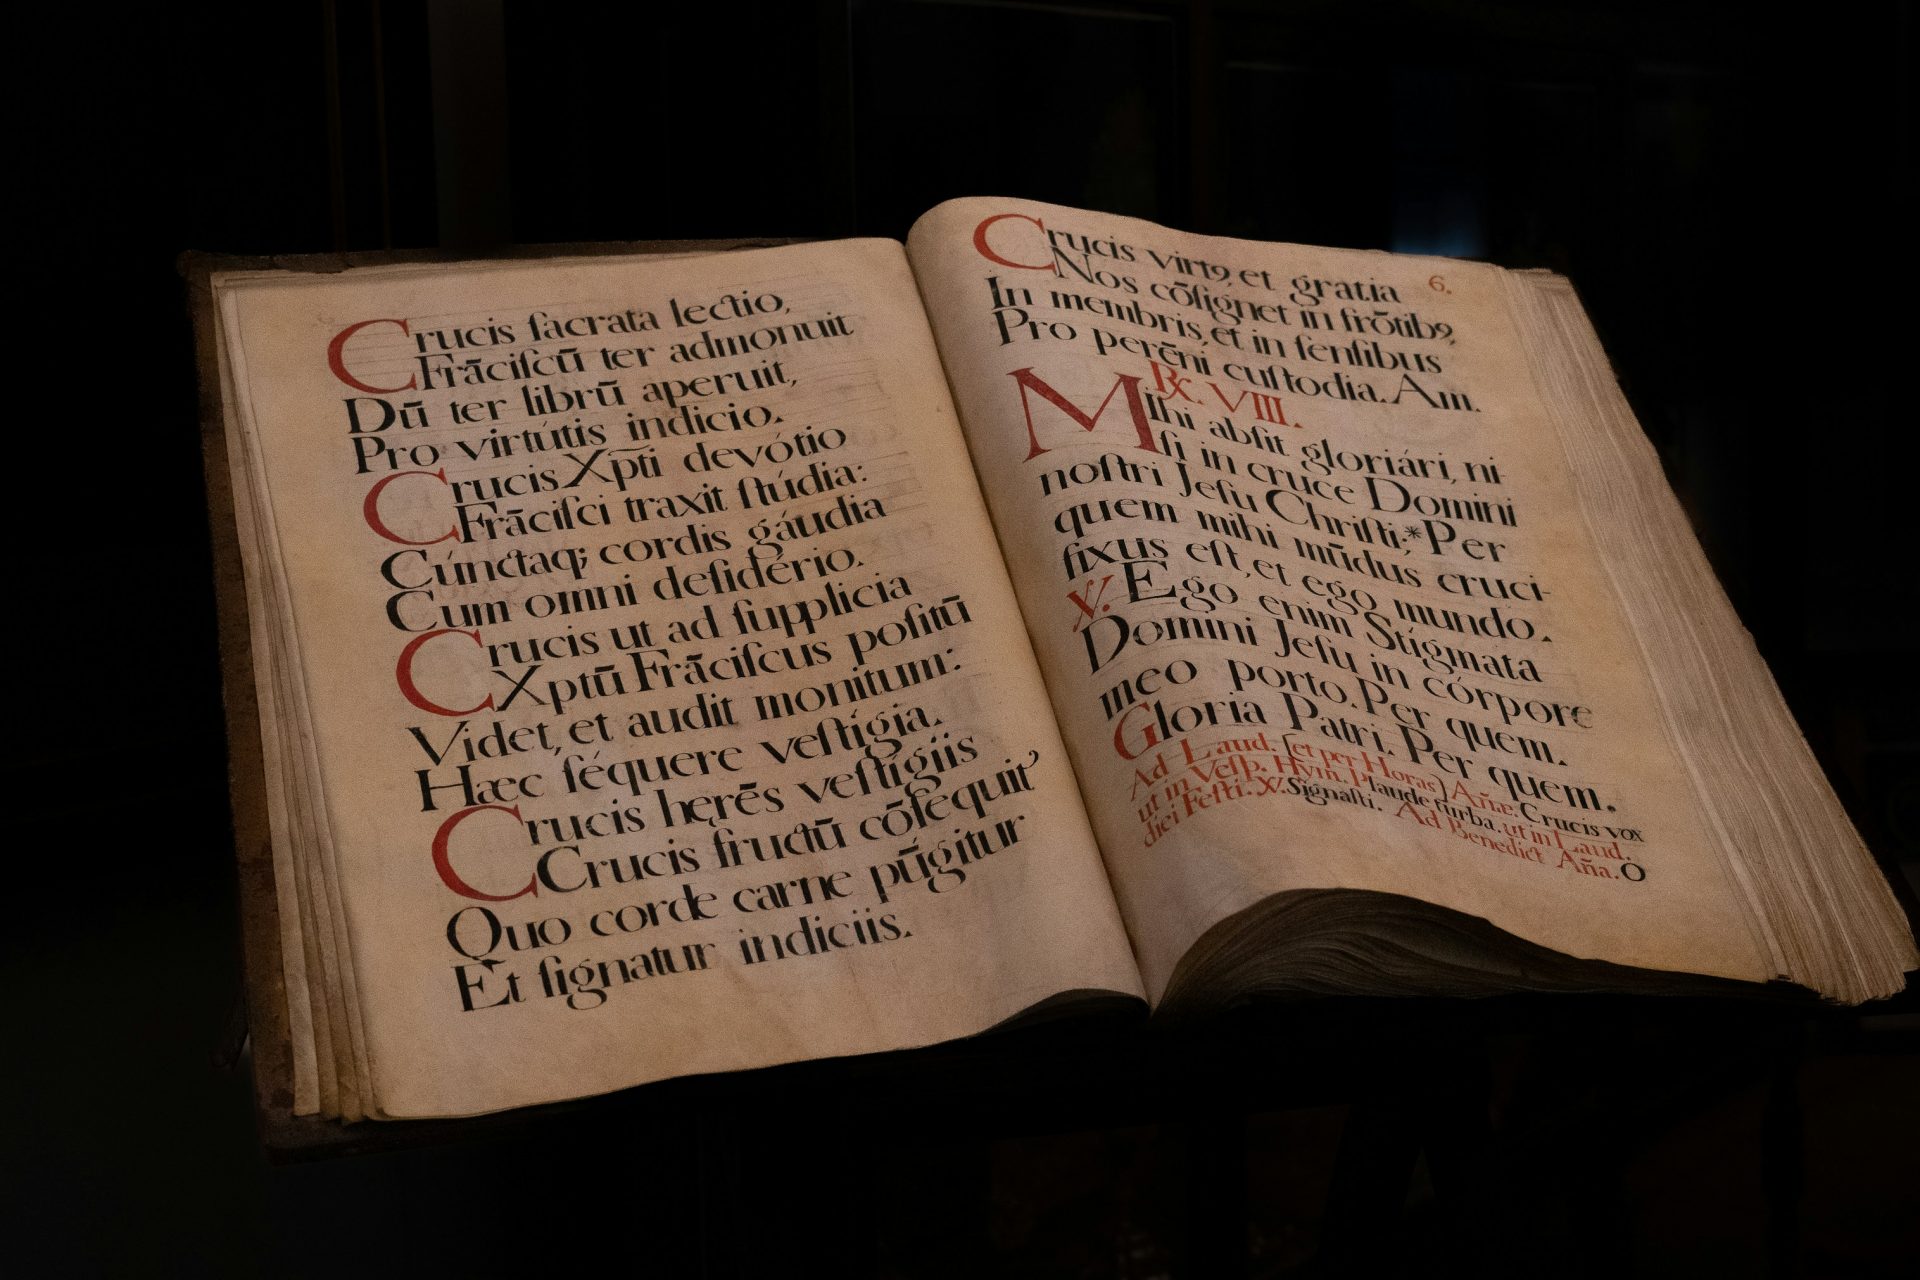 Crucis ſacrata lectio,
Frāciſcū ter admonuit
Dū ter librū aperuit,
Pro virtútis indicio.
Crucis Xp̄ti devótio
Frāciſci traxit ſtúdia:
Cúnctaq; cordis gáudia
Cum omni deſidério.
Crucis ut ad ſupplicia
Xptū Frāciſcus poſitū
Videt, et audit monitum:
Hæc ſéquere veſtígia.
Crucis hęrēs veſtígiis
Crucis fructū cōſequit᷑
Quo corde carne pūgitur
Et ſignatur indiciis.
6.
Crucis virtꝰ, et gratia
Nos cōſignet in frōtibꝰ,
In membris, et in ſenſibus
Pro perēni cuſtodia. Am.
℞. VIII.
Mihi abſit gloriári, ni-
ſi in cruce Domini
noſtri Jeſu Chriſti; * Per
quem mihi mūdus cruci-
fixus eſt, et ego mundo.
℣. Ego enim Stígmata
Domini Jeſu in córpore
meo porto. Per quem.
Gloria Patri. Per quem.
Ad Laud. (et per Horas) Añæ: Crucis vox
ut in Veſp. Hym. Plaude turba. ut in Laud.
diei Feſti. ℣. Signaſti. Ad Benedict Aña. O